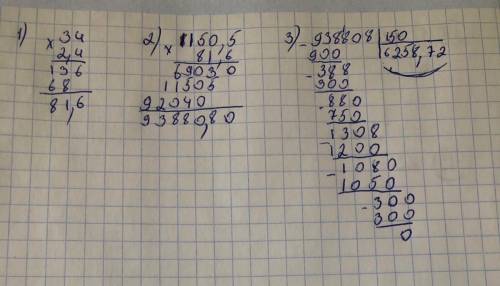 1) × 34
2,4
136
68
81,6
2) × 1150,5
81,6
69030
11505
92040
93880,80
3) - 938808 | 150
900 | 6258,72
- 388
900
- 880
750
1308
1200
- 1080
1050
- 300
300
0